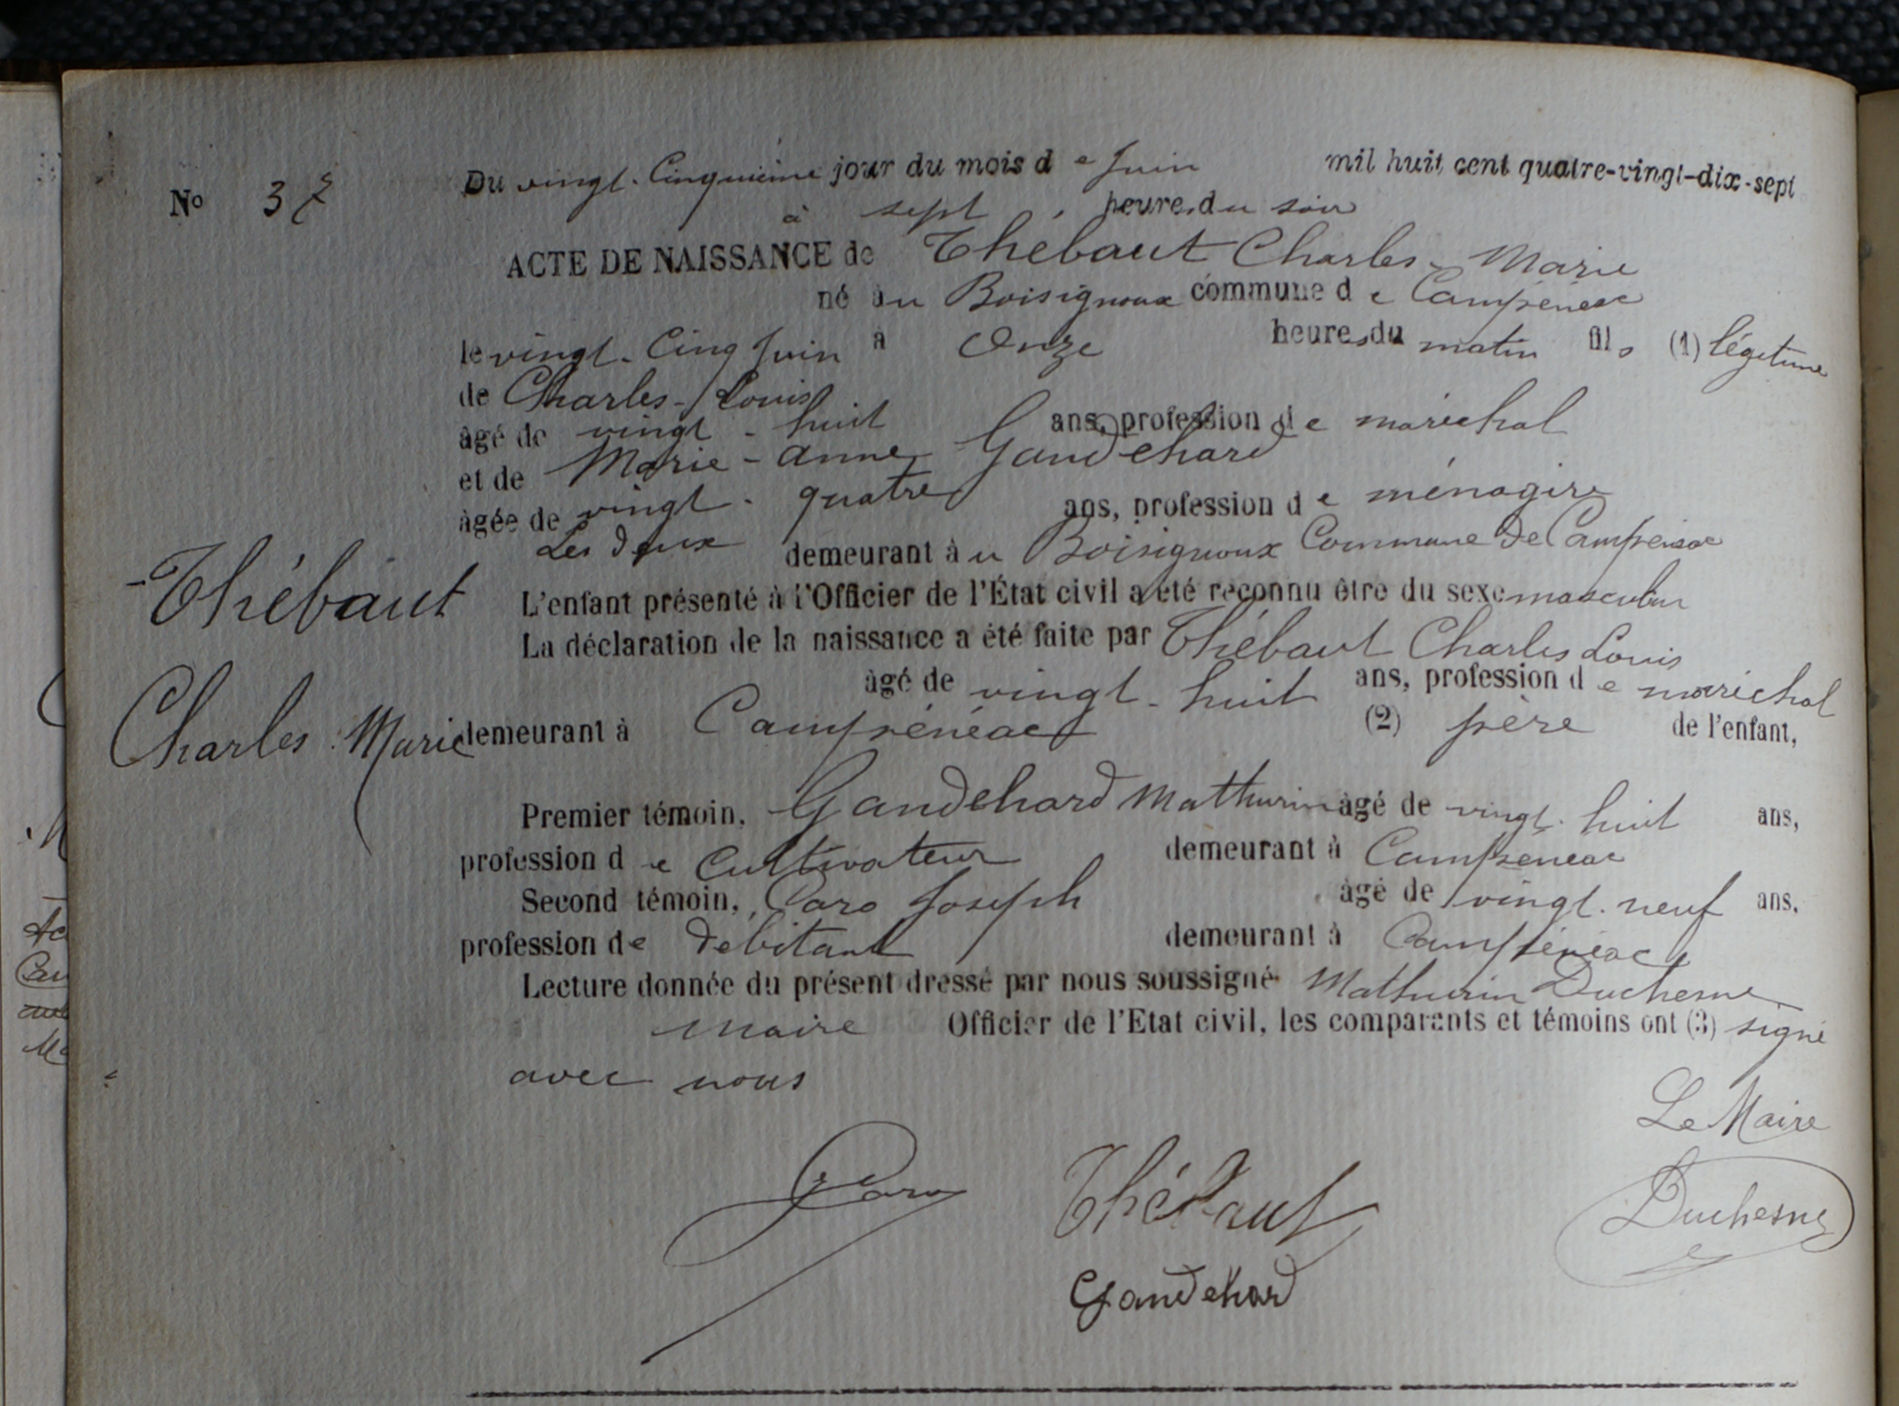 No 37
Du vingt-Cinquième jour du mois de Juin mil huit cent quatre-vingt-dix-sept
à sept heures du soir
ACTE DE NAISSANCE de Thébaut Charles-Marie
né au Boisignoux commune de Campénéac
le vingt-Cinq Juin à Onze heures du matin fils (1) légitime
de Charles-Louis
âgé de vingt-huit ans, profession de maréchal
et de Marie-Anne Gandehard
âgée de vingt-quatre ans, profession de ménagère
Les deux demeurant au Boisignoux Commune de Campénéac
L'enfant présenté à l'Officier de l'État civil a été reconnu être du sexe masculin
La déclaration de la naissance a été faite par Thébaut Charles Louis
âgé de vingt-huit ans, profession de maréchal
demeurant à Campénéac (2) père de l'enfant,
Thébaut
Charles Marie
Premier témoin, Gandehard Mathurin âgé de vingt-huit ans,
profession de Cultivateur demeurant à Campénéac
Second témoin, Caro Joseph âgé de vingt-neuf ans,
profession de débitant demeurant à Campénéac
Lecture donnée du présent dressé par nous soussigné Mathurin Duchesne
maire Officier de l'Etat civil, les comparants et témoins ont (3) signé
avec nous
Le Maire
Caro Thébaut Duchesne
Gandehard